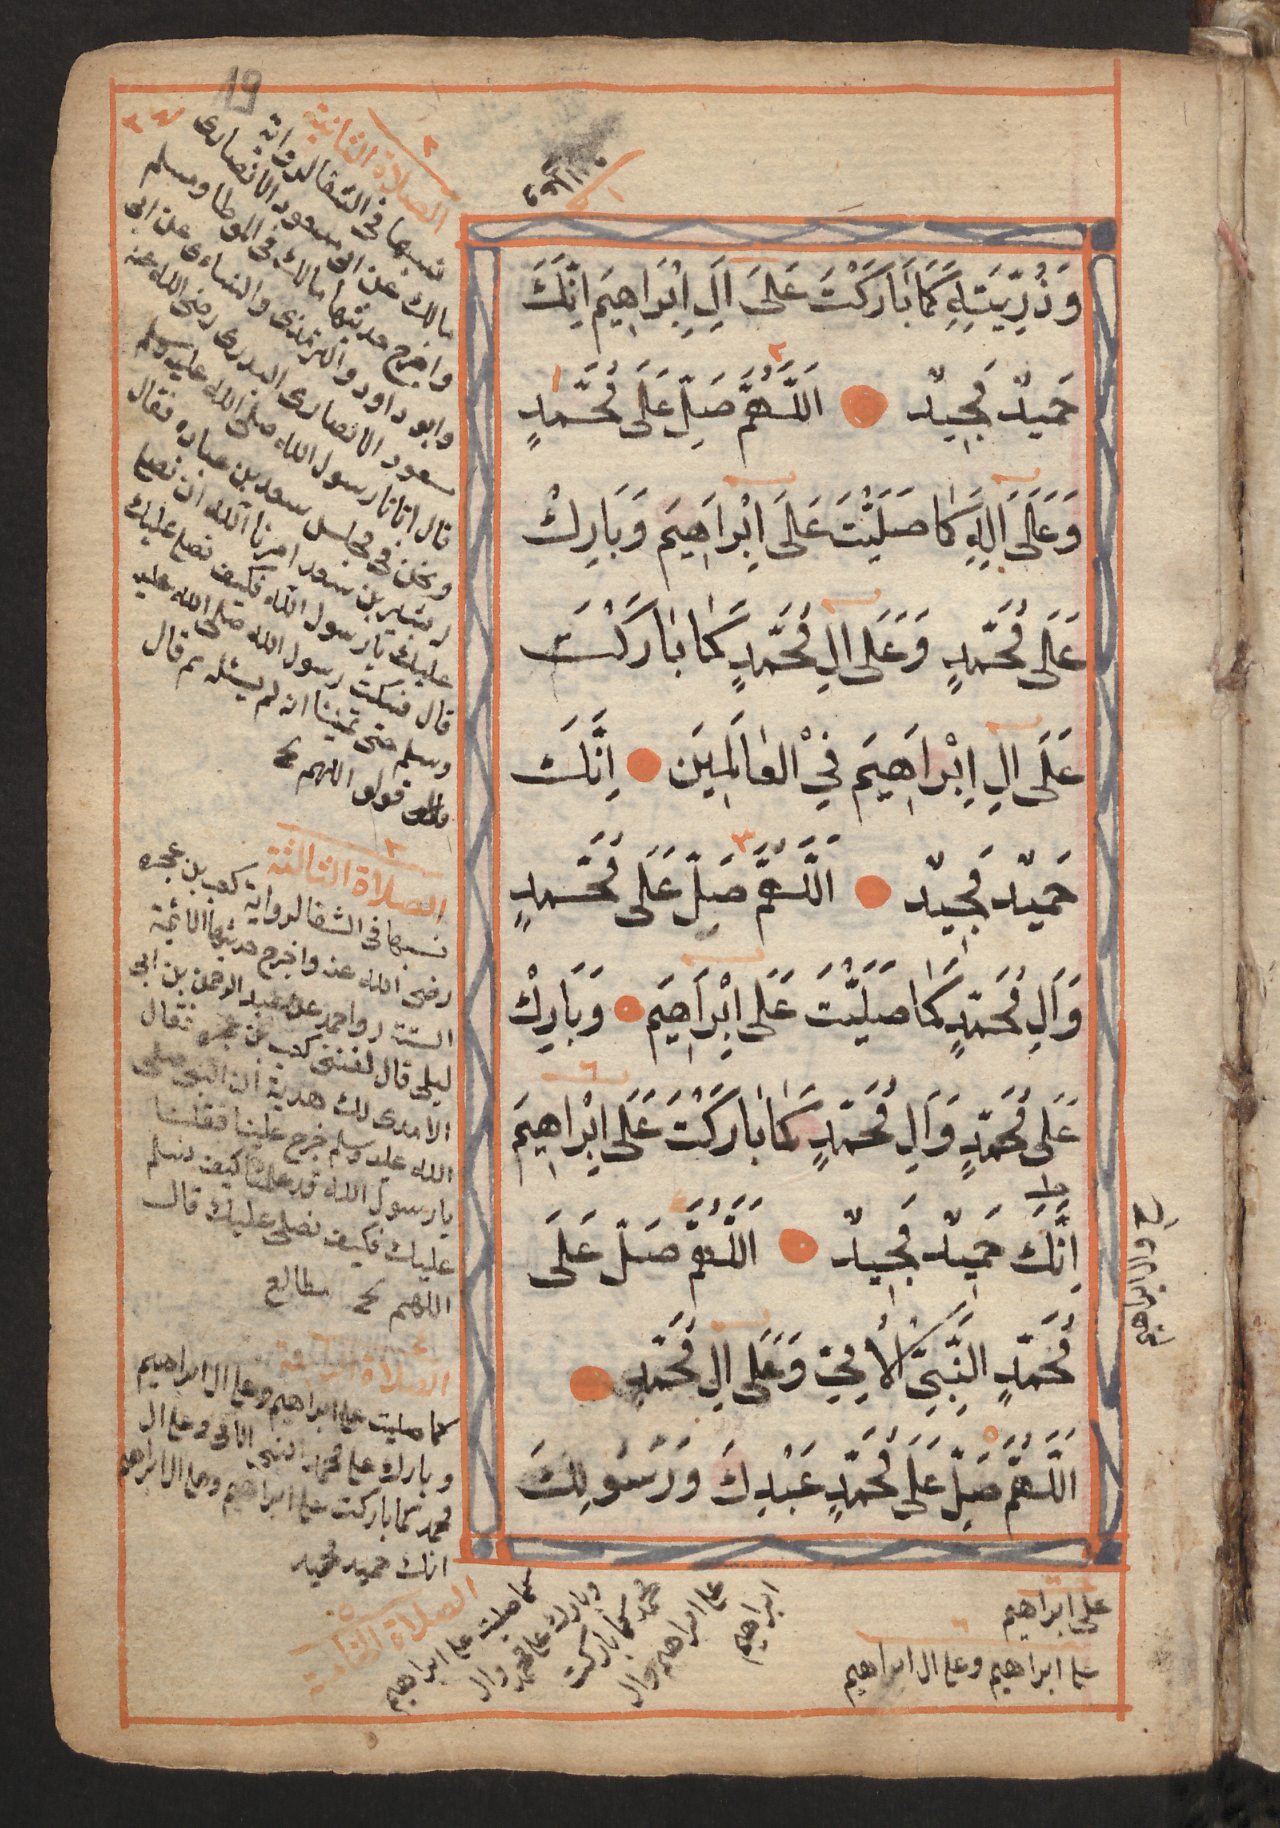 وَذُرِّيَّتِهِ كَمَا بَارَكْتَ عَلَى اَلِ اِبْرَاهِيمَ اِنَّكَ
حَمِيدٌ مَجِيدٌ اَللَّهُمَّ صَلِّ عَلَى مُحَمَّدٍ
وَعَلَى اَلِهِ كَمَا صَلَيْتَ عَلَى اِبْرَاهِيمَ وَبَارِكْ
عَلَى مُحَمَّدٍ وَعَلَى اَلِ مُحَمَّدٍ كَمَا بَارَكْتَ
عَلَى اَلِ اِبْرَاهِيمَ فِي الْعَالَمِينَ اِنَّكَ
حَمِيدٌ مَجِيدٌ ٣ اَللَّهُمَّ صَلِّ عَلَى مُحَمَّدٍ
وَاَلِ مُحَمَّدٍ كَمَا صَلَيْتَ عَلَى اِبْرَاهِيمَ وَبَارِكْ
عَلَى مُحَمَّدٍ وَاَلِ مُحَمَّدٍ كَمَا بَارَكْتَ عَلَى اِبْرَاهِيمَ
اِنَّكَ حَمِيدٌ مَجِيدٌ اَللَّهُمَّ صَلِّ عَلَى
مُحَمَّدٍ النَّبِيِّ الْاُمِّيِّ وَعَلَى اَلِ مُحَمَّدٍ
٥ اَللَّهُمَّ صَلِّ عَلَى مُحَمَّدٍ عَبْدِكَ وَرَسُولِكَ
19
الصلاة الثانية
نسبها فى الشفا لرواية
مالك عن ابى مسعود الانصارى
واخرج حديثها مالك فى الموطا ومسلم
وابو داود والترمذى والنساءى عن ابى
مسعود الانصارى البدرى رضى الله عنه
قال اتانا رسول الله صلى الله عليه وسلم
ونحن فى مجلس سعد بن عباده فقال
بشير بن سعد امرنا الله ان نصلى
عليك يا رسول الله فكيف نصلى عليك
قال فسكت رسول الله صلى الله عليه
وسلم حتى تمنينا انه لم يسئله ثم قال
قولو اللهم
الصلاة الثالثة
نسبها فى الشفا لرواية كعب بن عجره
رضى الله عنه واخرج حديثها الائمة
الستة واحمد عن عبد الرحمن بن ابى
ليلى قال لقينى كعب بن عجره فقال
الا اهدى لك هدية ان النبى صلى
الله عليه وسلم خرج علينا فقلنا
يا رسول الله قد علمنا كيف نسلم
عليك فكيف نصلى عليك قال
اللهم مطالع
الصلاة الرابعة
كما صليت على ابراهيم وعلى ال ابراهيم
وبارك على محمد النبى الامى وعلى ال
محمد كما باركت على ابراهيم وعلى ال ابراهيم
انك حميد مجيد
الصلاة الخامسة
كما صليت على ابراهيم
وبارك على محمد وال
محمد كما باركت
على ابراهيم وال
ابراهيم
على ابراهيم
٦
على ابراهيم وعلى ال ابراهيم
وال ابراهيم